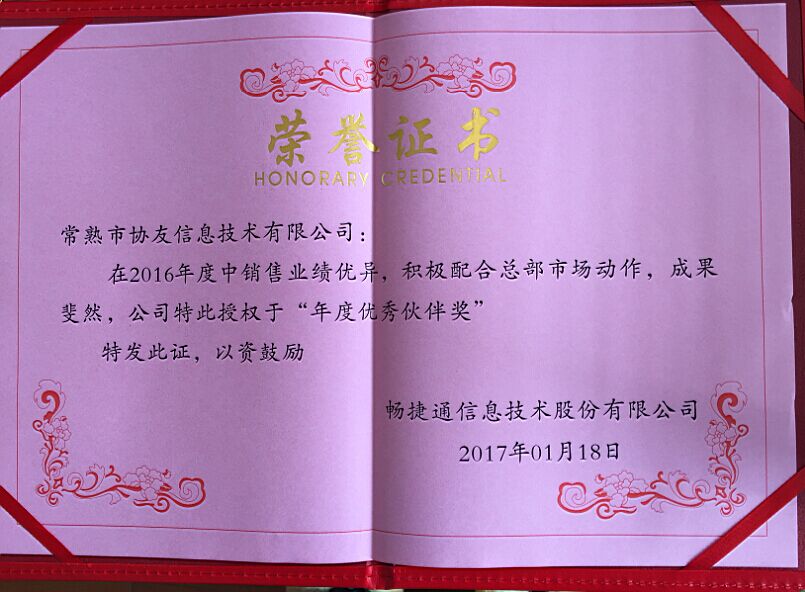 荣誉证书
HONORARY CREDENTIAL
常熟市协友信息技术有限公司：
在2016年度中销售业绩优异，积极配合总部市场动作，成果
斐然，公司特此授权于“年度优秀伙伴奖”
特发此证，以资鼓励
畅捷通信息技术股份有限公司
2017年01月18日